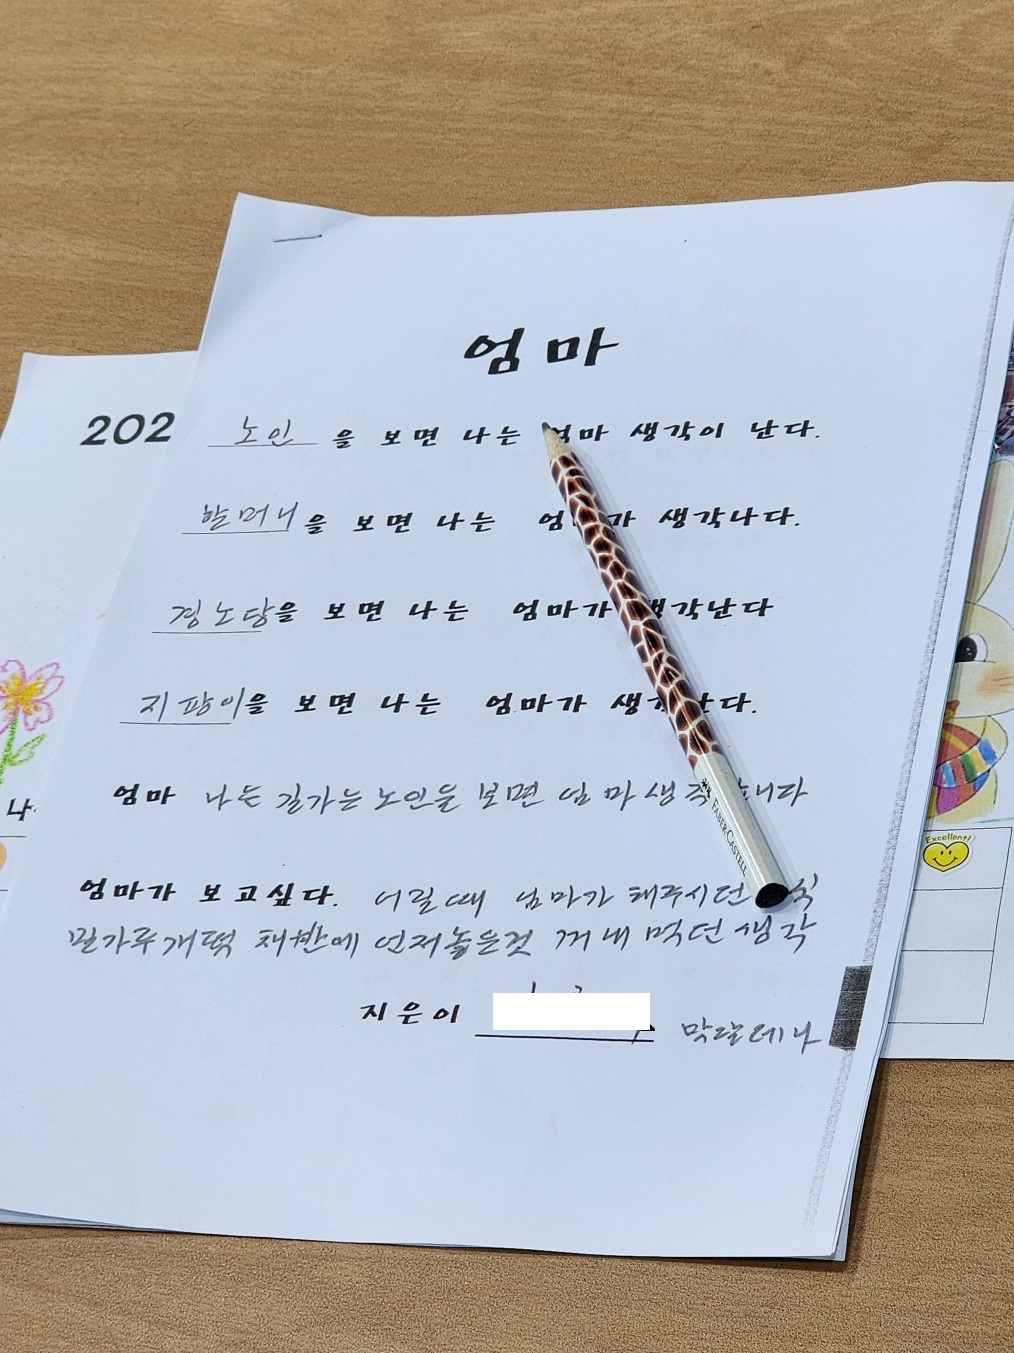 엄마
202
노인 을 보면 나는 엄마 생각이 난다.
할머니을 보면 나는 생각나다.
경노당을 보면 나는 엄마가 생각난다
지팡이을 보면 나는 엄마가 생각난다.
엄마 나는 길가는 노인을 보면 엄마 생각
엄마가 보고싶다. 어릴때 엄마가 해주시던
밀가루개떡 채반에 언저놓은것 꺼내 먹던 생각
지은이 막달레나
FABER-CASTELL
Excellent!
나